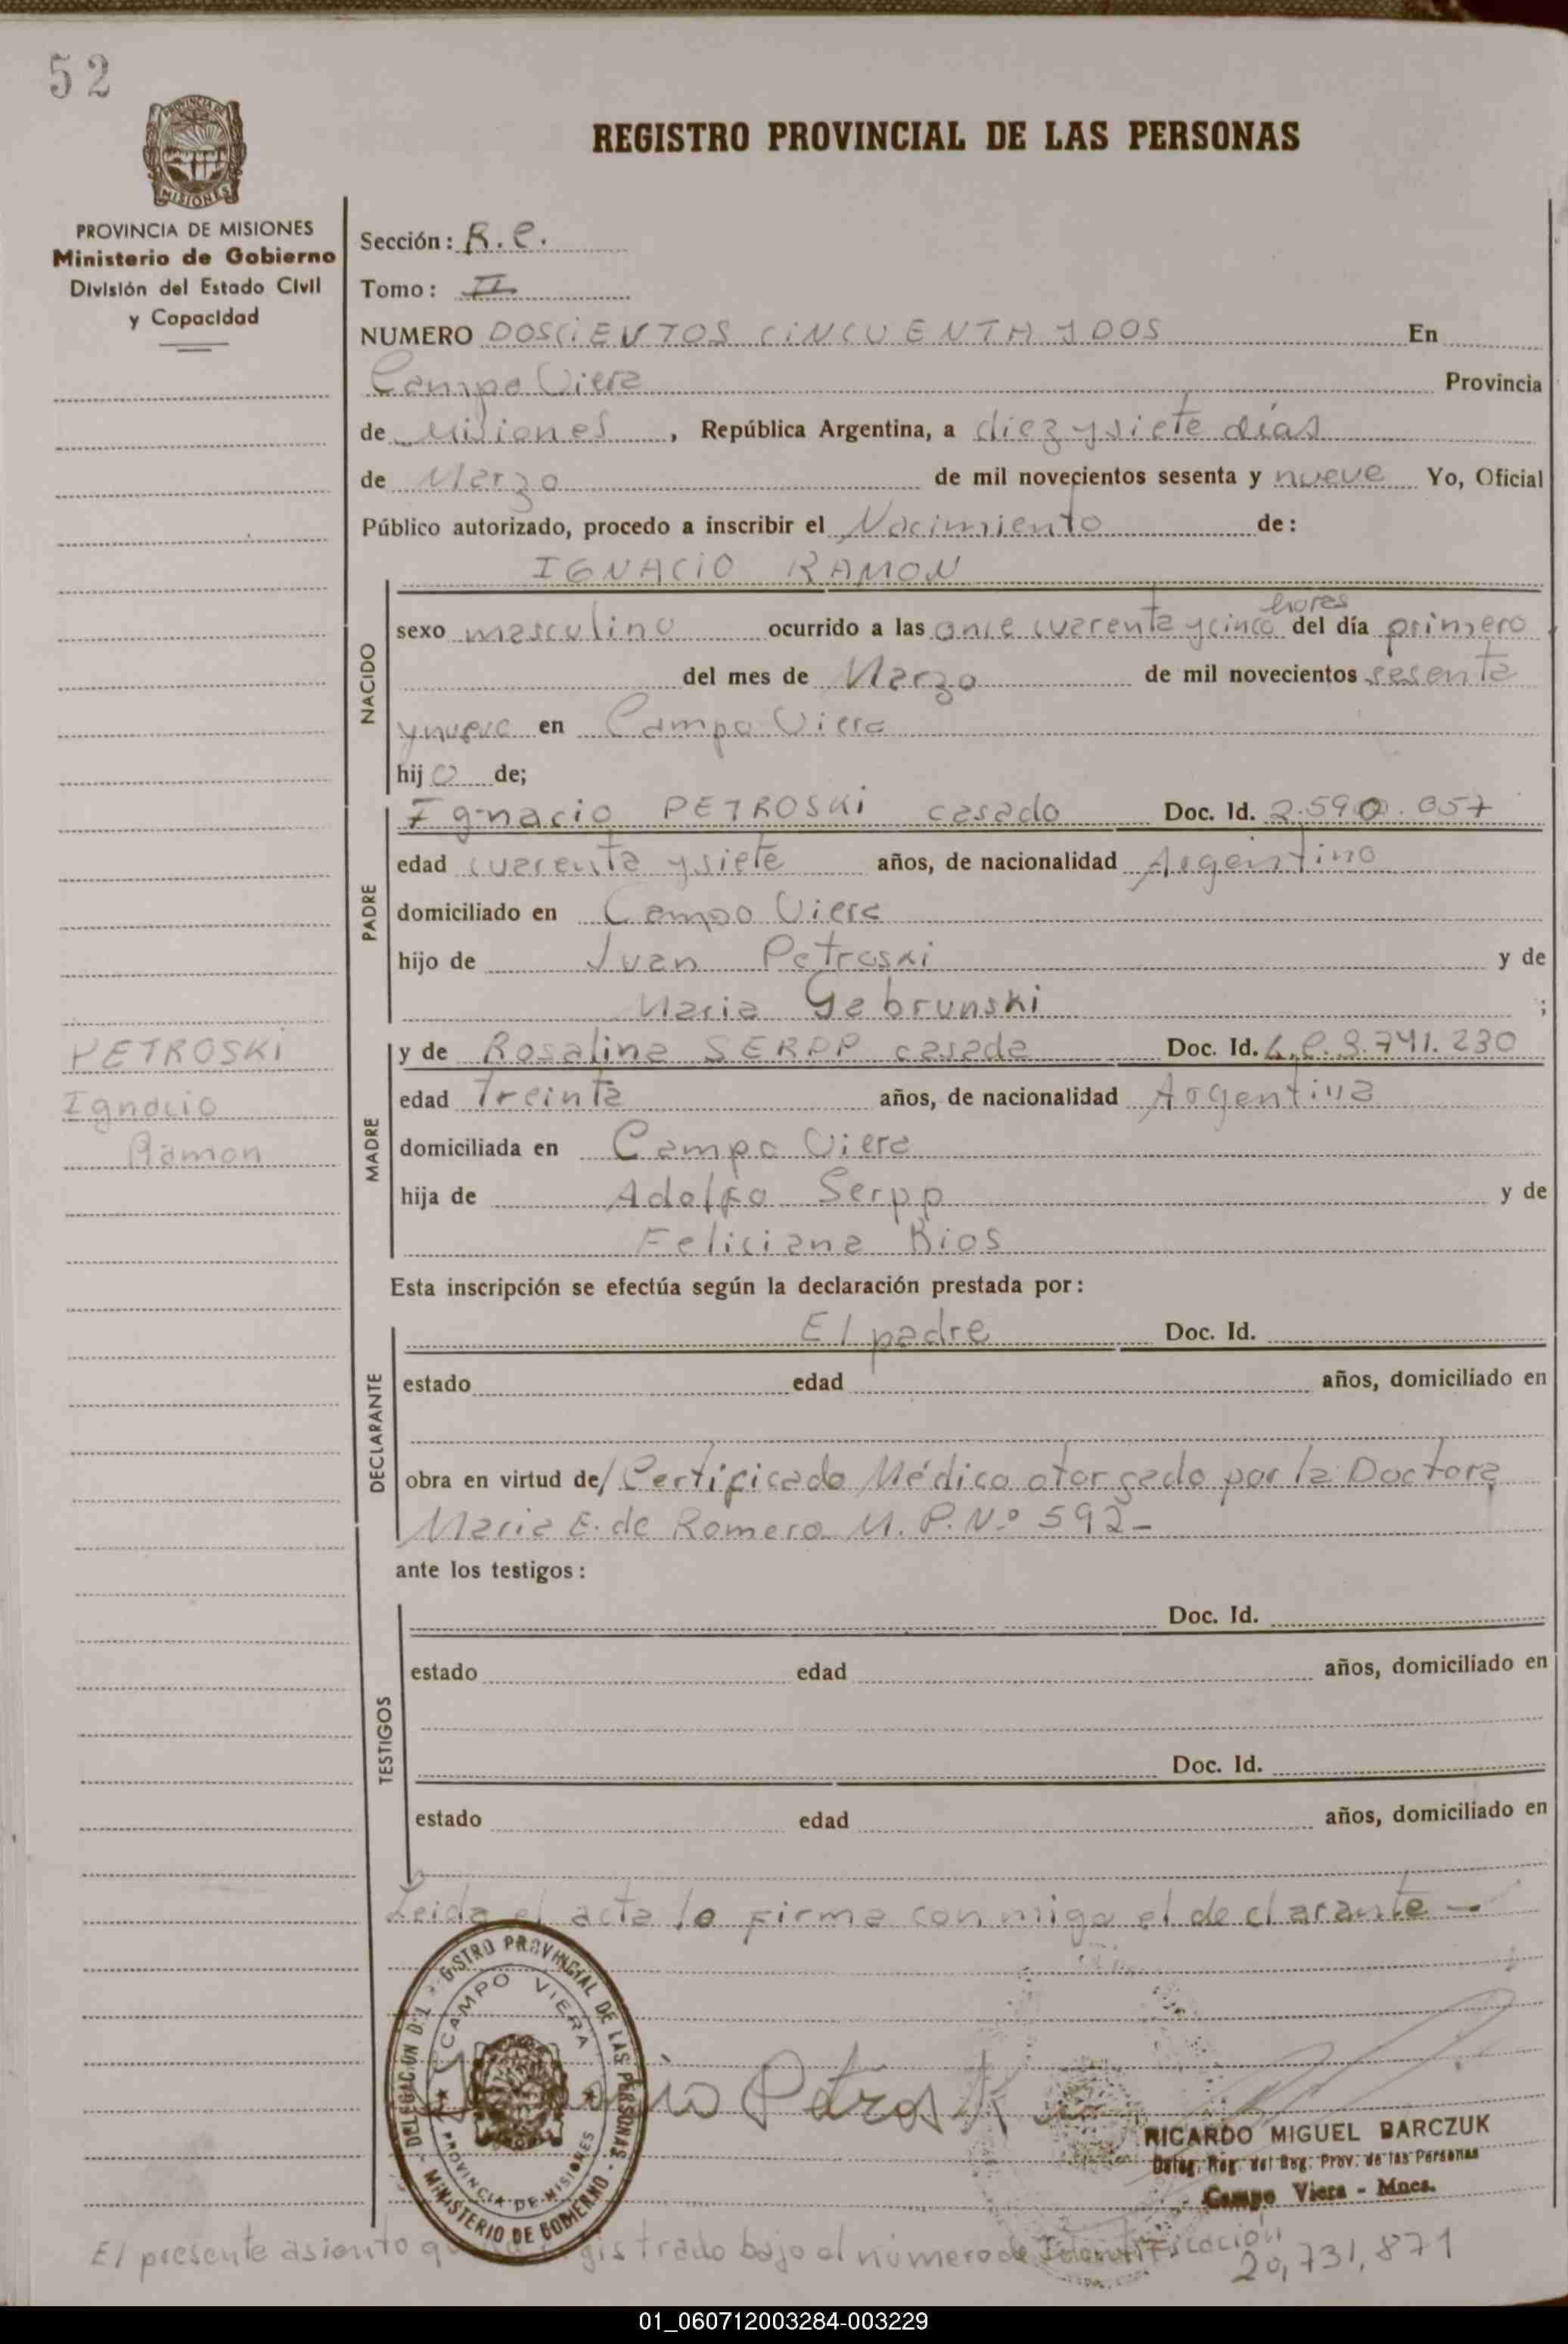 52
PROVINCIA DE MISIONES
PROVINCIA DE MISIONES
Ministerio de Gobierno
División del Estado Civil
y Capacidad
REGISTRO PROVINCIAL DE LAS PERSONAS
Sección: R.C.
Tomo: II
NUMERO DOSCIENTOS CINCUENTA Y DOS En
Campo Viera Provincia
de Misiones, República Argentina, a diez y siete días
de Marzo de mil novecientos sesenta y nueve Yo, Oficial
Público autorizado, procedo a inscribir el Nacimiento de:
NACIDO
IGNACIO RAMON
horas
sexo masculino ocurrido a las once cuarenta y cinco del día primero
del mes de Marzo de mil novecientos sesenta
y nueve en Campo Viera
hijo de;
PADRE
Ignacio PETROSKI casado Doc. Id. 2.590.057
edad cuarenta y siete años, de nacionalidad Argentino
domiciliado en Campo Viera
hijo de Juan Petroski y de
Maria Gebrunski ;
PETROSKI
Ignacio
Ramon
MADRE
y de Rosalina SERPP casada Doc. Id. L.C. 3.741.230
edad Treinta años, de nacionalidad Argentina
domiciliada en Campo Viera
hija de Adolfo Serpp y de
Feliciana Rios
Esta inscripción se efectúa según la declaración prestada por:
DECLARANTE
El padre Doc. Id.
estado edad años, domiciliado en
obra en virtud de/ Certificado Médico otorgado por la Doctora
Maria E. de Romero M.P.Nº 592-
ante los testigos:
TESTIGOS
Doc. Id.
estado edad años, domiciliado en
Doc. Id.
estado edad años, domiciliado en
Leida el acta lo firma conmigo el declarante -
DELEGACION DEL REGISTRO PROVINCIAL DE LAS PERSONAS
CAMPO VIERA
PROVINCIA DE MISIONES
MINISTERIO DE GOBIERNO
Ignacio Petroski
RICARDO MIGUEL BARCZUK
Deleg. Reg. del Reg. Prov. de las Personas
Campo Viera - Mnes.
El presente asiento queda registrado bajo el numero de Identificacion
20,731,871
01_060712003284-003229